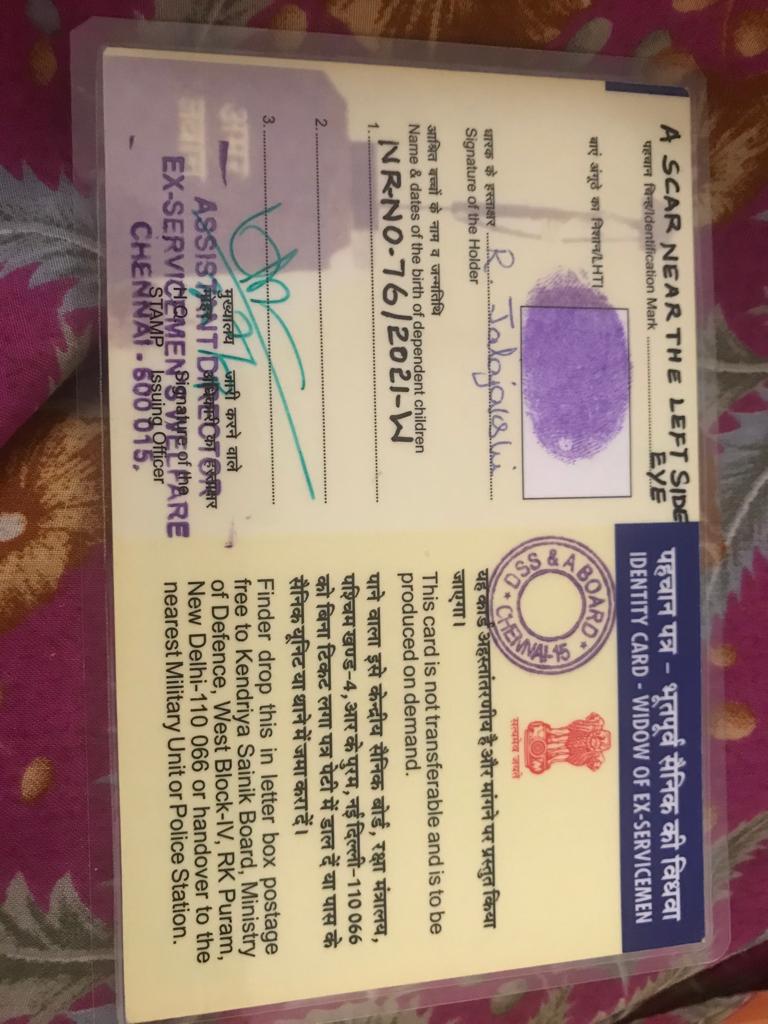 A SCAR NEAR THE LEFT SIDE
पहचान चिन्ह/Identification Mark
EYE
बाएं अंगूठे का निशान/LHTI
धारक के हस्ताक्षर
Signature of the Holder
आश्रित बच्चों के नाम व जन्मतिथि
Name & dates of the birth of dependent children
1. NR-NO-76/2021-W
2.
3.
मुख्यालय जारी करने वाले
Signature of the
STAMP Issuing Officer
ASSISTANT DIRECTOR
EX-SERVICEMEN'S WELFARE
CHENNAI - 600 015.
पहचान पत्र - भूतपूर्व सैनिक की विधवा
IDENTITY CARD - WIDOW OF EX-SERVICEMEN
DSS & A BOARD
CHENNAI-15
सत्यमेव जयते
यह कार्ड अहस्तांतरणीय है और मांगने पर प्रस्तुत किया
जाएगा।
This card is not transferable and is to be
produced on demand.
पाने वाला इसे केन्द्रीय सैनिक बोर्ड, रक्षा मंत्रालय,
पश्चिम खण्ड-4, आर के पुरम, नई दिल्ली-110 066
को बिना टिकट लगा पत्र पेटी में डाल दें या पास के
सैनिक यूनिट या थाने में जमा करा दें।
Finder drop this in letter box postage
free to Kendriya Sainik Board, Ministry
of Defence, West Block-IV, RK Puram,
New Delhi-110 066 or handover to the
nearest Military Unit or Police Station.